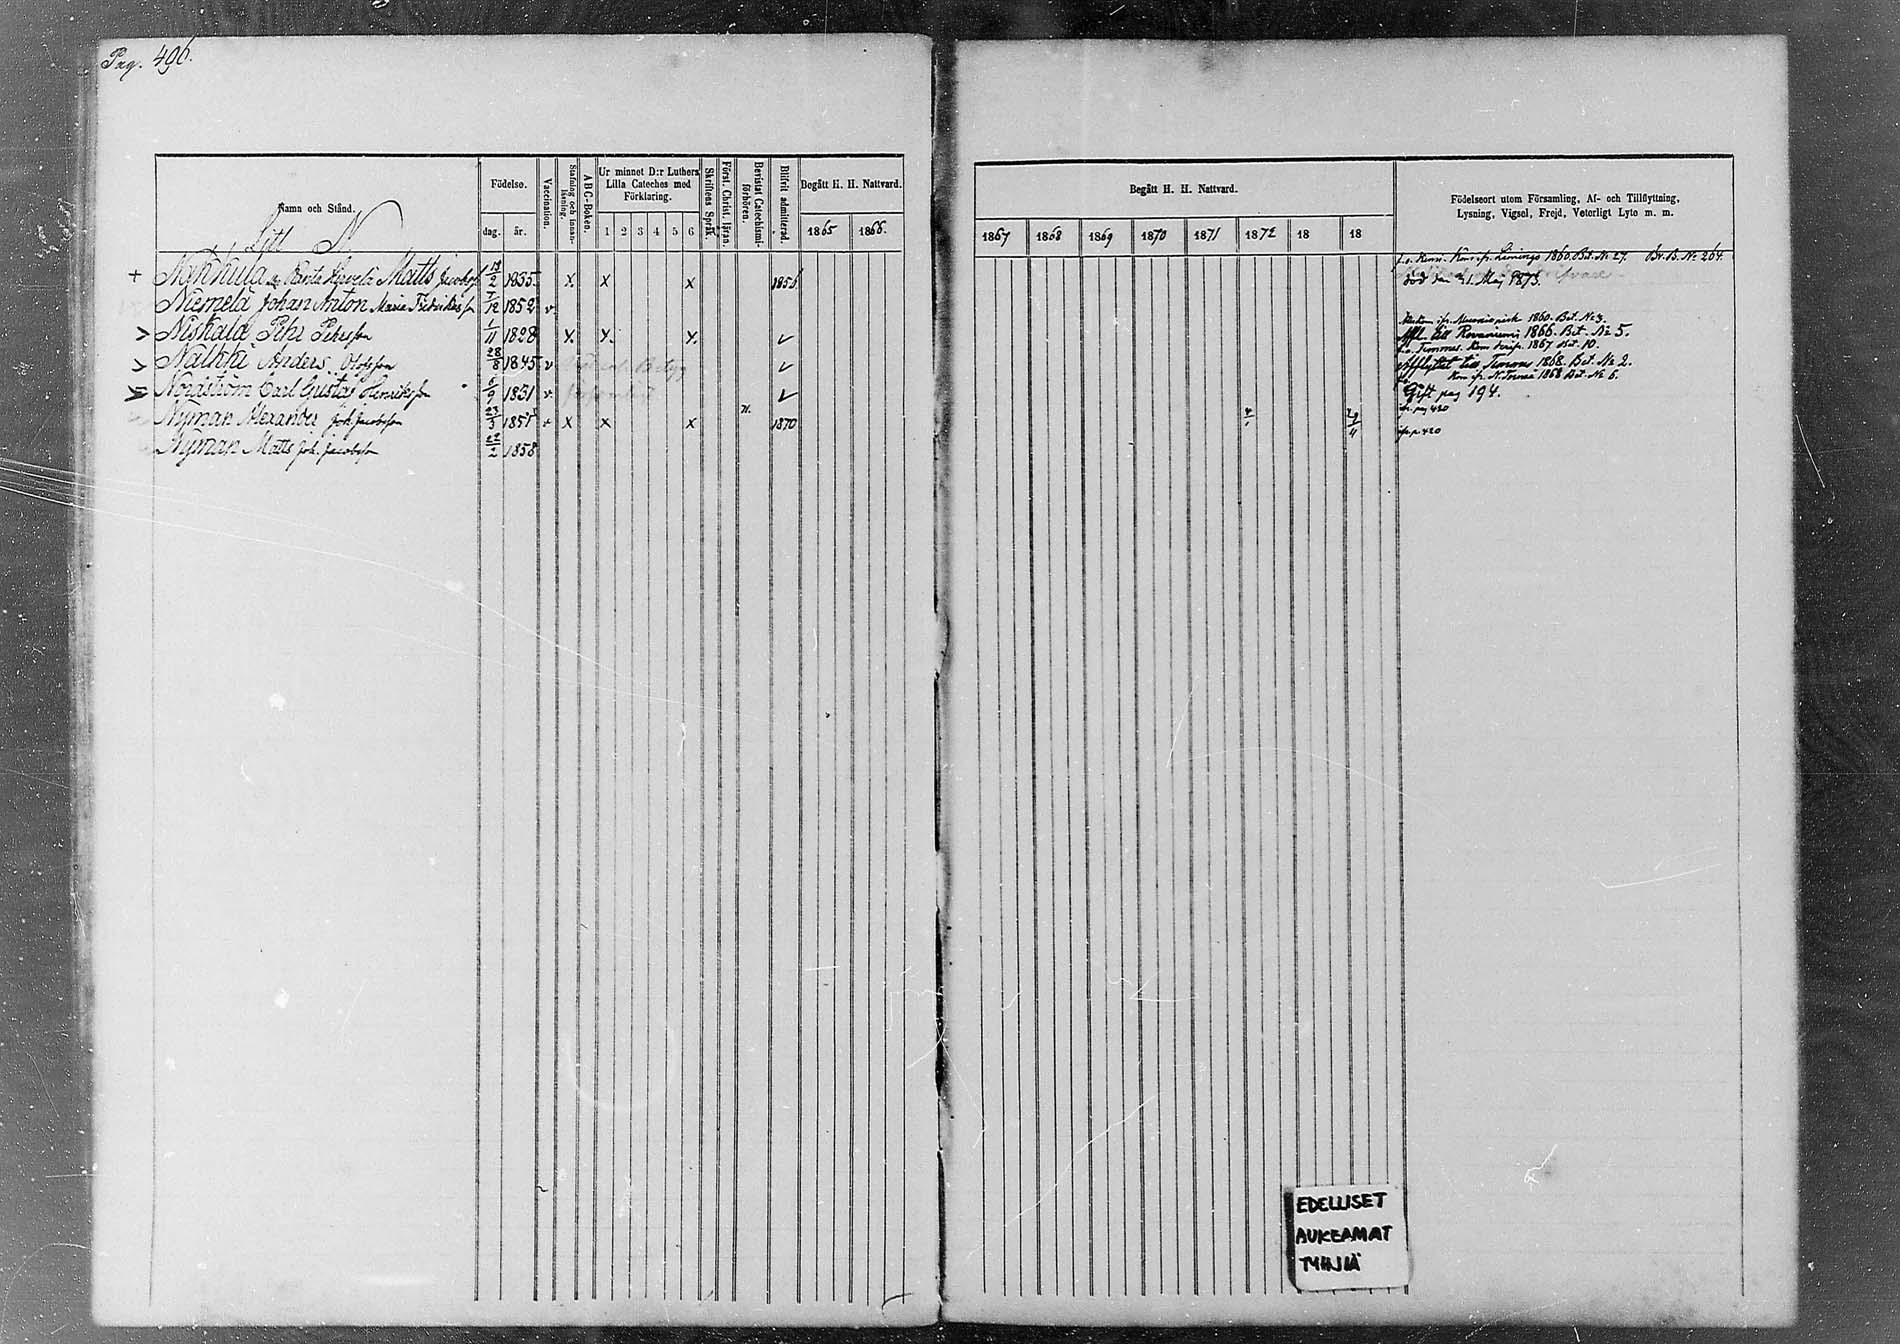 Pag. 496.
Namn och Stånd.
Litt. N.
Födelse.
dag. år.
Vaccination.
Stafning och innanläsning.
ABC-Boken.
Ur minnet D:r Luthers Lilla Cateches med Förklaring.
1 2 3 4 5 6
Skriftens Språk.
Först. Christ. läran.
Bevistat Catechismiförhören.
Blifvit admitterad.
Begått H. H. Nattvard.
1865 1866.
+ Matts Jacobsson 2 1835 X X X 1856
Niemelä Johan Anton Maria Fredrikas son 7/12 1852 v
> Niskala Pehr Pehrsson 1/11 1828 X X X v
> Nalkki Anders Olofsson 28/8 1845 v v
Nordström Carl Gustaf Henriksson 6/9 1831 v v
Nyman Alexander Joh. Jacobsson 23/3 1855 + X X X n. 1870
Nyman Matts Joh. Jacobsson 22/2 1858
Begått H. H. Nattvard.
1867 1868 1869 1870 1871 1872 18 18
Födelseort utom Församling, Af- och Tillflyttning,
Lysning, Vigsel, Frejd, Veterligt Lyte m. m.
Limingo 1860. Bet. No 27. Br. B. No 264.
död den 21. Maj 1873.
1860. Bet. No 3.
Affl. till Rovaniemi 1866. Bet. No 5.
1867 Bet. 10.
Afflyttat till Simo 1868. Bet. No 2.
Kom ifr. N. Torneå 1868 Bet. No 6.
Gift pag 194.
ifr. pag 420
ifr. p. 420
EDELLISET
AUKEAMAT
TYHJIÄ